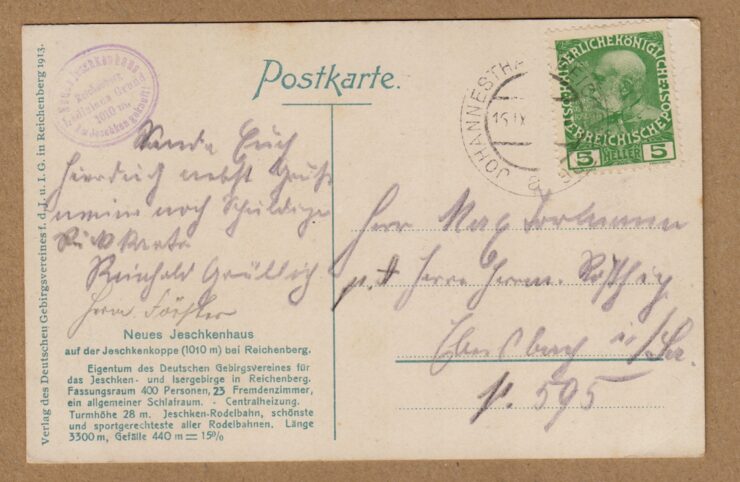 Verlag des Deutschen Gebirgsvereines f. d. J. u. I. G. in Reichenberg 1913.
Neues Jeschkenhaus
Reichenberg
1010 m
Postkarte.
JOHANNESTHA
16.IX
1908
KAISERLICHE KÖNIGLICHE
ÖSTERREICHISCHE POST
5 HELLER 5
Sende Euch
hierdurch nebst Gruß
meine noch Schuldige
Rück Karte
Reinhold Grüllich
Herm. Förster
Neues Jeschkenhaus
auf der Jeschkenkoppe (1010 m) bei Reichenberg.
Eigentum des Deutschen Gebirgsvereines für
das Jeschken- und Isergebirge in Reichenberg.
Fassungsraum 400 Personen, 23 Fremdenzimmer,
ein allgemeiner Schlafraum. - Centralheizung.
Turmhöhe 28 m. Jeschken-Rodelbahn, schönste
und sportgerechteste aller Rodelbahnen. Länge
3300 m, Gefälle 440 m = 15%
Herr Max
p. A Herrn Herm.
Ebersbach i/Sa.
p. 595